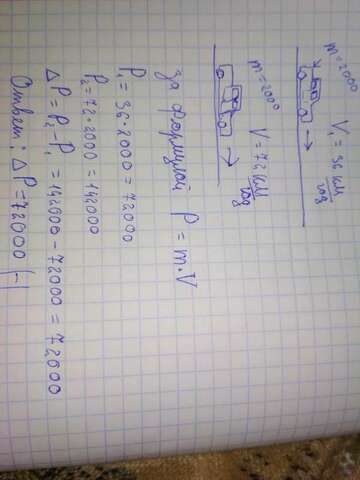 m=2000
V₁=36 км/год
m=2000
V=72 км/год
за формулой P=m·V
P₁=36·2000=72000
P₂=72·2000=142000
ΔP=P₂-P₁=142000-72000=72000
Ответ: ΔP=72000